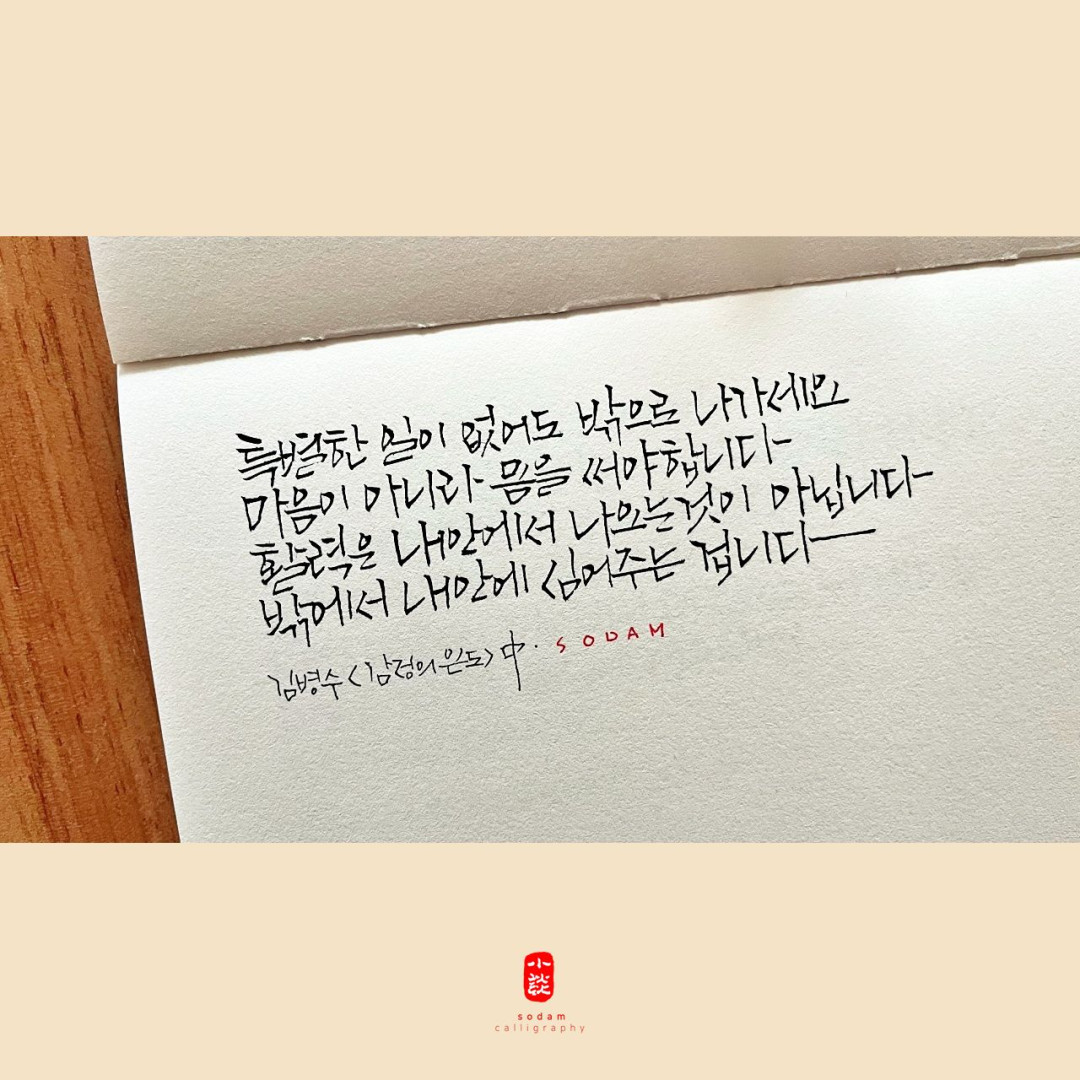 특별한 일이 없어도 밖으로 나가세요
마음이 아니라 몸을 써야합니다
활력은 내안에서 나오는것이 아닙니다
밖에서 내안에 심어주는 겁니다
김병수 <감정의 온도> 中. SODAM
小談
sodam
calligraphy